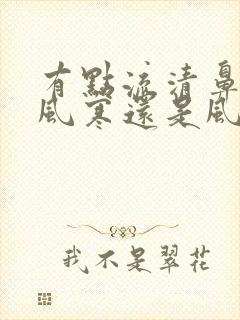 有點流清鼻
風寒還是風
我不是翠花